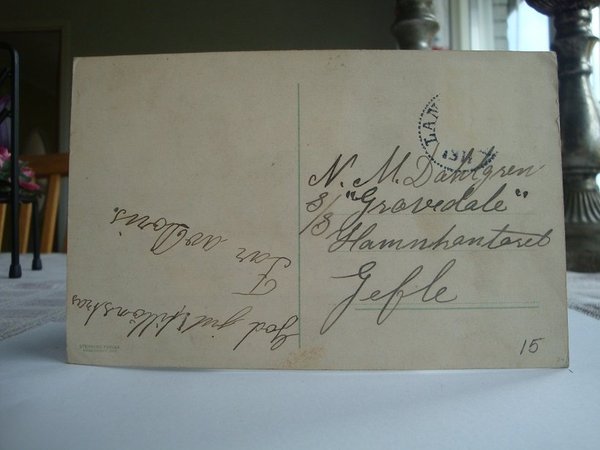 God jul & tillönskas
Far av Doris.
LAN
191
N. M. Dahlgren
S/S "Gravedale"
Hamnkontoret
Gefle
15